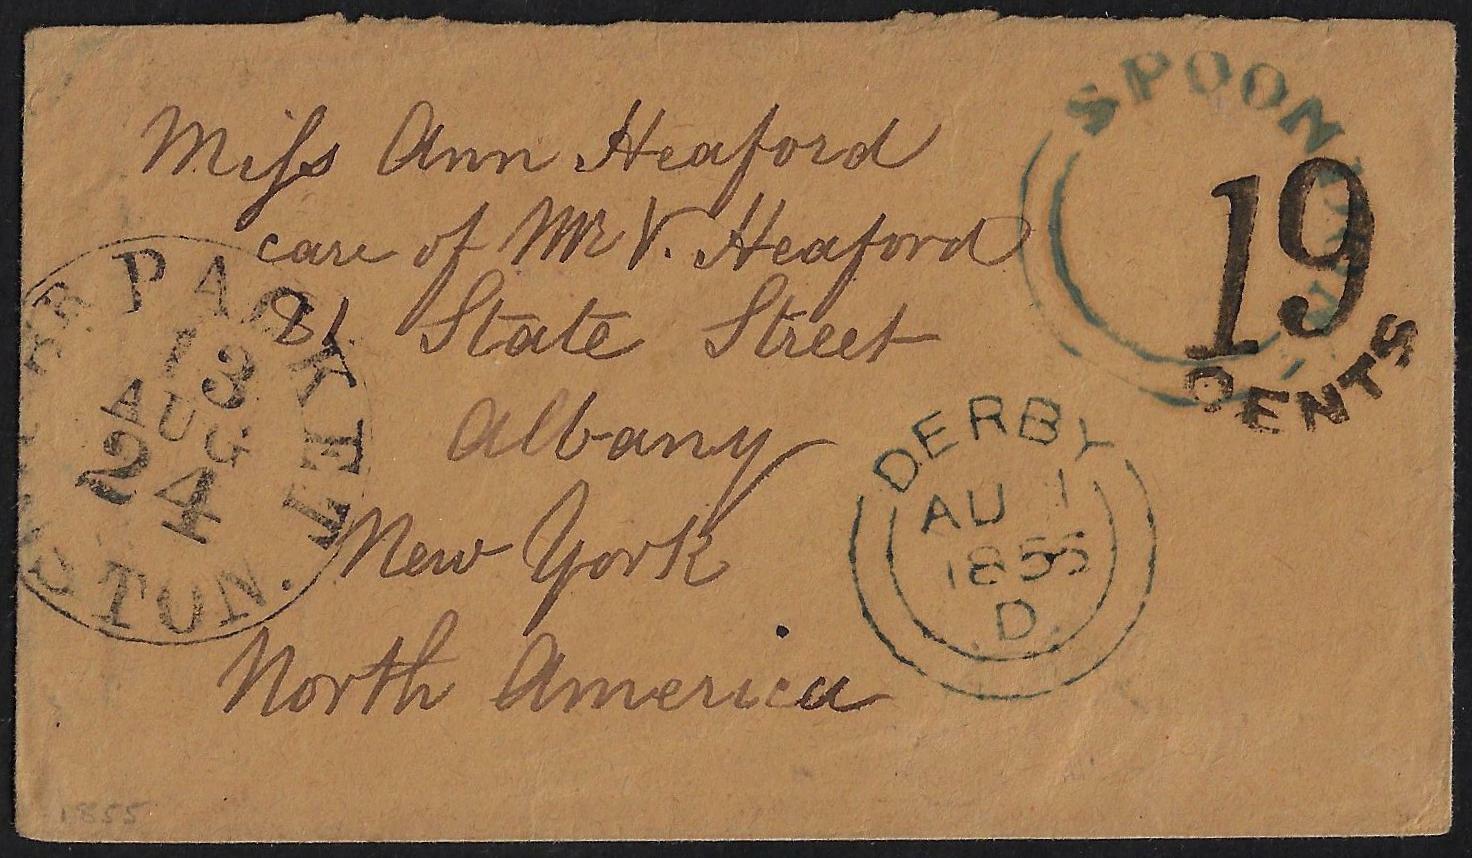 Miss Ann Heaford
care of Mr V. Heaford
81 State Street
Albany
New York
North America
SPOON
19
CENTS
DERBY
AU 1
1855
D
PACKET
13
AUG
24
1855